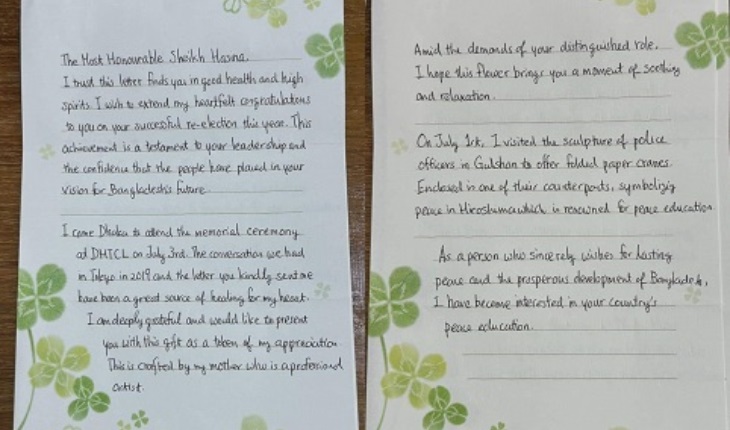 The Most Honourable Sheikh Hasina.
I trust this letter finds you in good health and high
spirits. I wish to extend my heartfelt congratulations
to you on your successful re-election this year. This
achievement is a testament to your leadership and
the confidence that the people have placed in your
vision for Bangladesh's future
I came Dhaka to attend the memorial ceremony
at DMTCL on July 3rd. The conversation we had
in Tokyo in 2019 and the letter you kindly sent me
have been a great source of healing for my heart.
I am deeply grateful and would like to present
you with this gift as a token of my appreciation
This is crafted by my mother who is a professional
artist.
Amid the demands of your distinguished role,
I hope this flower brings you a moment of soothing
and relaxation.
On July 1st, I visited the sculpture of police
officers in Gulshan to offer folded paper cranes.
Enclosed is one of their counterparts, symbolizing
peace in Hiroshima which is renowned for peace education.
As a person who sincerely wishes for lasting
peace and the prosperous development of Bangladesh,
I have become interested in your country's
peace education.